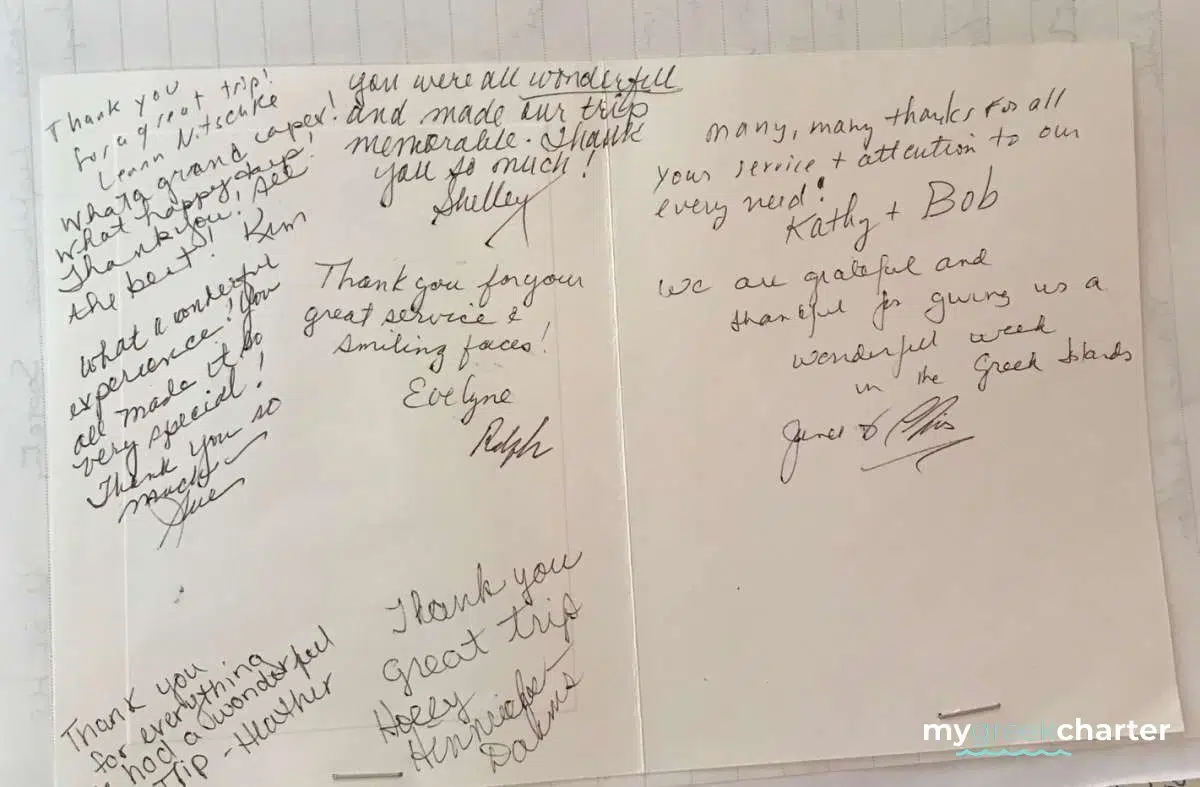 Thank you
for a great trip!
Leann Nitschke
What a grand caper!
What happy days!
Thank you! All
the best! Kim
What a wonderful
experience! You
all made it so
very special!
Thank you so
much
Sue
Thank you
for everything
had a wonderful
Trip - Heather
you were all wonderful
and made our trip
memorable. Thank
you so much!
Shelley
Thank you for your
great service &
smiling faces!
Evelyne
Ralph
Thank you
great trip
Holly
many, many thanks for all
your service + attention to our
every need!
Kathy + Bob
We are grateful and
thankful for giving us a
wonderful week
in the Greek Islands
&
mygreekcharter